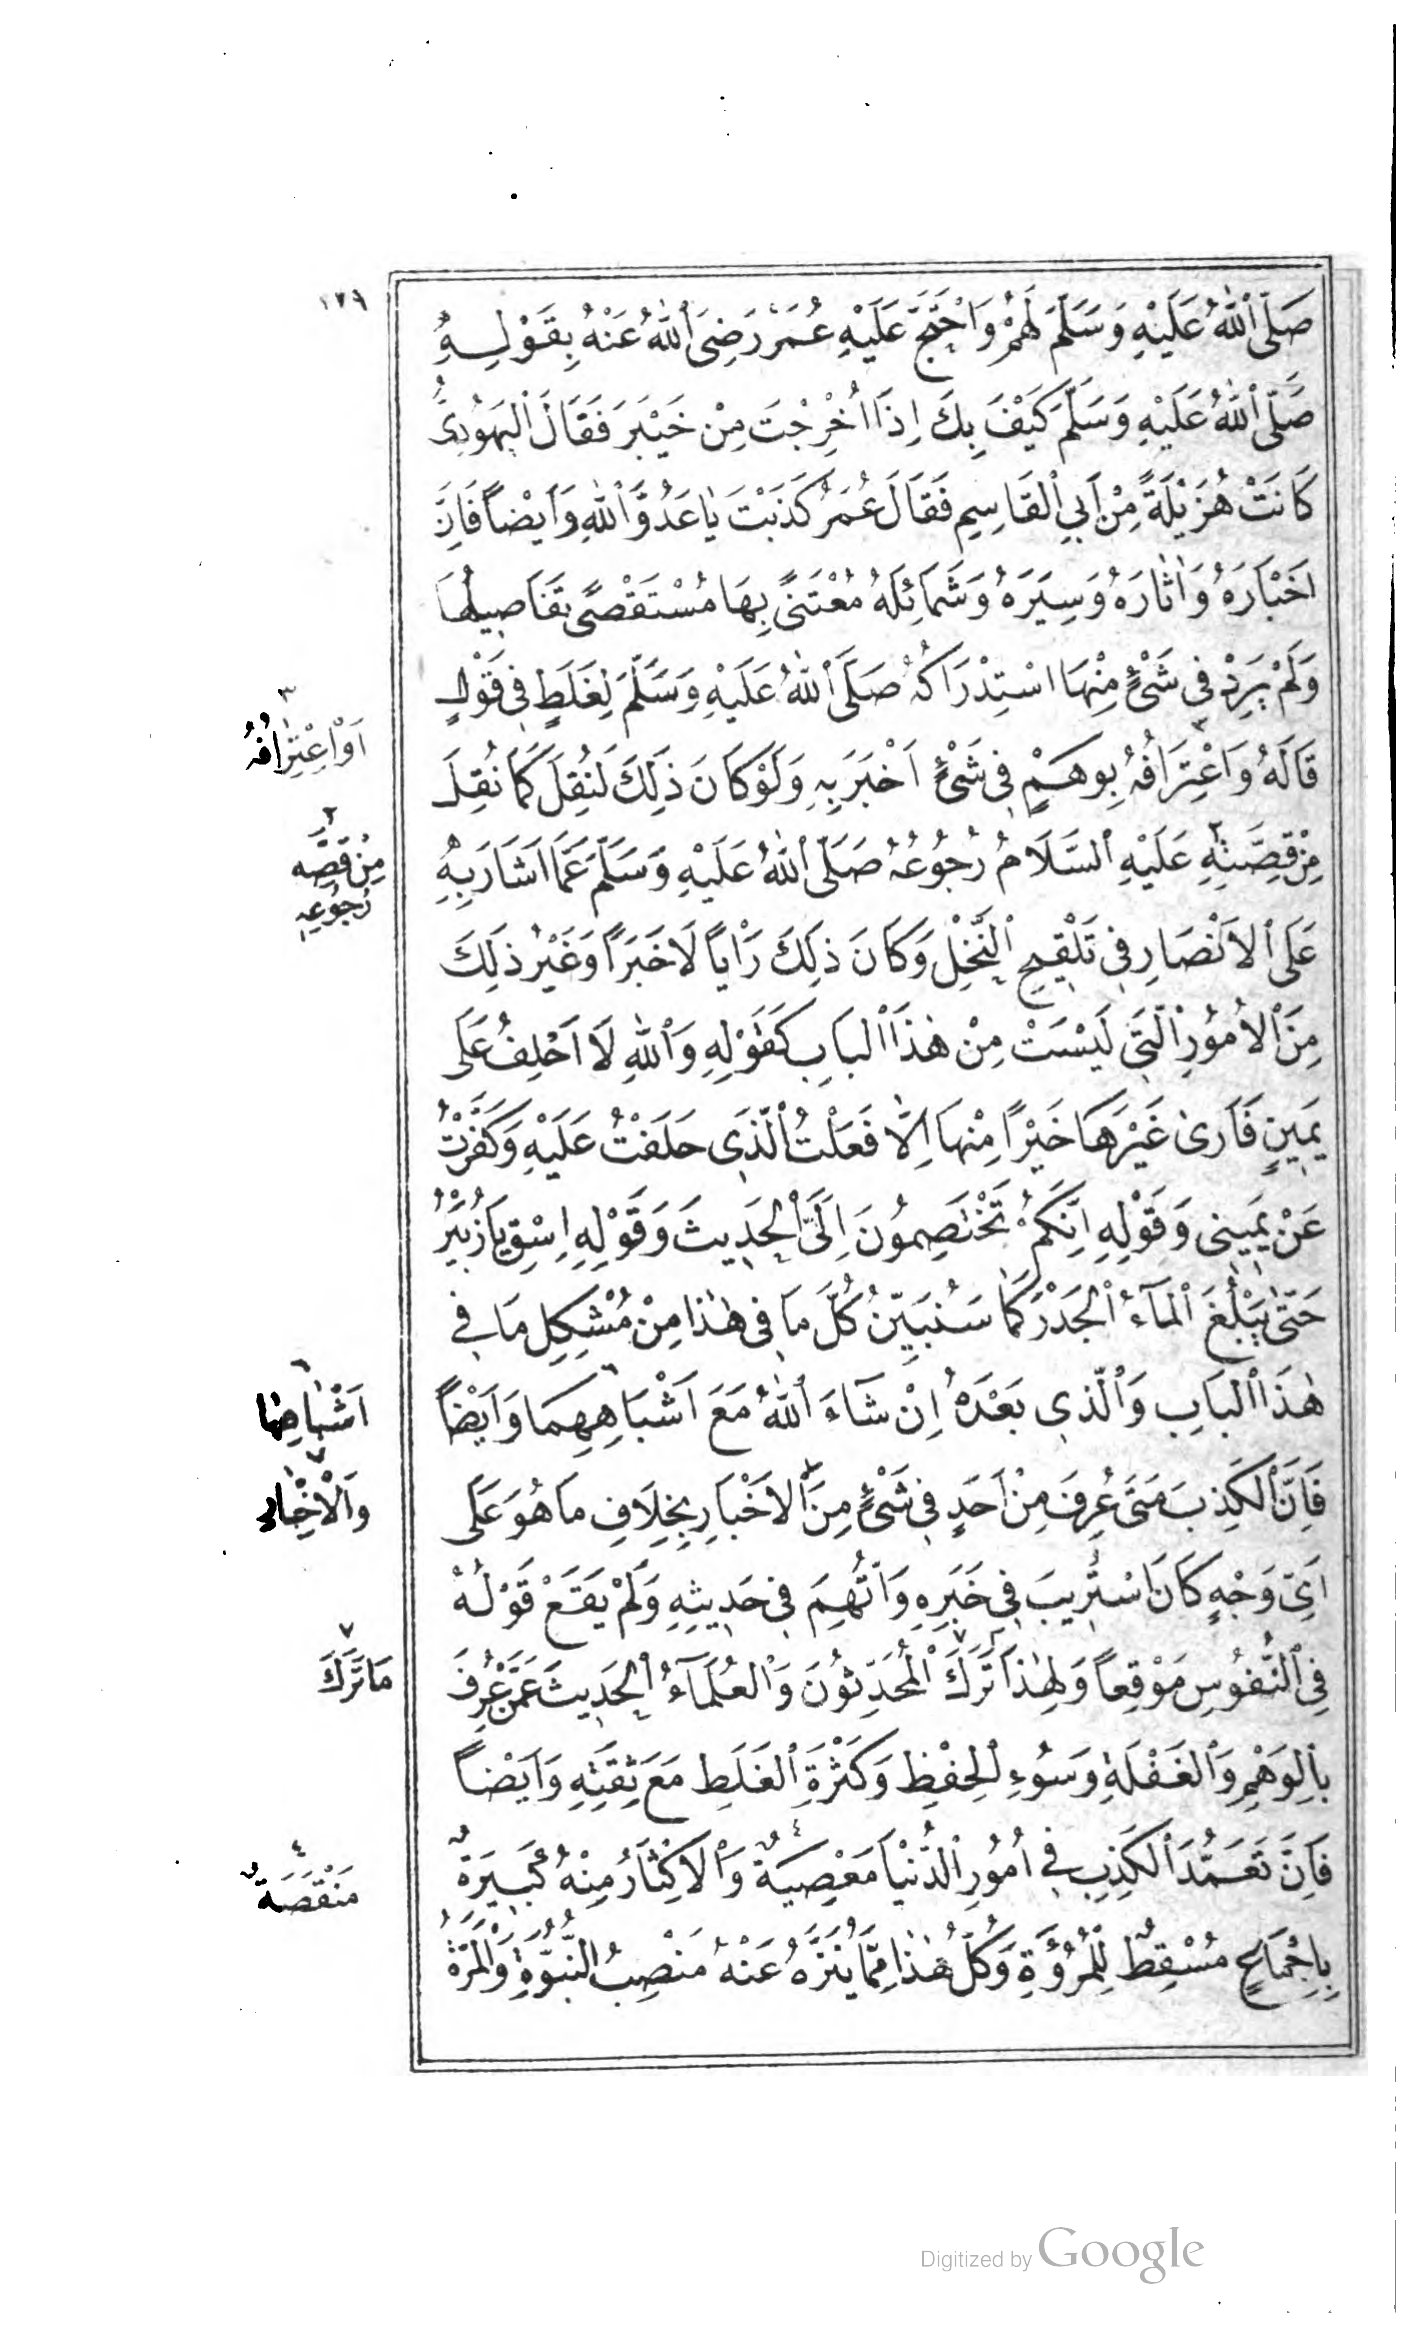 ١٢٩
صَلَّى ٱللهُ عَلَيْهِ وَسَلَّمَ لَهُمْ وَٱحْتَجَّ عَلَيْهِ عُمَرُ رَضِىَ ٱللهُ عَنْهُ بِقَوْلِهِ
صَلَّى ٱللهُ عَلَيْهِ وَسَلَّمَ كَيْفَ بِكَ اِذَا اُخْرِجْتَ مِنْ خَيْبَرَ فَقَالَ ٱلْيَهُودِىُّ
كَانَتْ هُزَيْلَةً مِنْ اَبِى ٱلْقَاسِمِ فَقَالَ عُمَرُ كَذَبْتَ يَا عَدُوَّ ٱللهِ وَاَيْضاً فَاِنَّ
اَخْبَارَهُ وَاٰثَارَهُ وَسِيَرَهُ وَشَمَائِلَهُ مُعْتَنًى بِهَا مُسْتَقْصًى تَفَاصِيلُهَا
وَلَمْ يَرِدْ فِى شَىْءٍ مِنْهَا اسْتِدْرَاكُهُ صَلَّى ٱللهُ عَلَيْهِ وَسَلَّمَ لِغَلَطٍ فِى قَوْلٍ
قَالَهُ وَاعْتِرَافُهُ بِوَهَمٍ فِى شَىْءٍ اَخْبَرَ بِهِ وَلَوْ كَانَ ذٰلِكَ لَنُقِلَ كَمَا نُقِلَ
مِنْ قِصَّتِهِ عَلَيْهِ ٱلسَّلَامُ رُجُوعُهُ صَلَّى ٱللهُ عَلَيْهِ وَسَلَّمَ عَمَّا اَشَارَ بِهِ
عَلَى ٱلْاَنْصَارِ فِى تَلْقِيحِ ٱلنَّخْلِ وَكَانَ ذٰلِكَ رَأْياً لَا خَبَراً وَغَيْرُ ذٰلِكَ
مِنَ ٱلْاُمُورِ ٱلَّتِى لَيْسَتْ مِنْ هٰذَا ٱلْبَابِ كَقَوْلِهِ وَٱللهِ لَا اَحْلِفُ عَلَى
يَمِينٍ فَاَرٰى غَيْرَهَا خَيْراً مِنْهَا اِلَّا فَعَلْتُ ٱلَّذِى حَلَفْتُ عَلَيْهِ وَكَفَّرْتُ
عَنْ يَمِينِى وَقَوْلِهِ اِنَّكُمْ تَخْتَصِمُونَ اِلَىَّ ٱلْحَدِيثَ وَقَوْلِهِ اِسْقِ يَا زُبَيْرُ
حَتّٰى يَبْلُغَ ٱلْمَاءُ ٱلْجَدْرَ كَمَا سَنُبَيِّنُ كُلَّ مَا فِى هٰذَا مِنْ مُشْكِلِ مَا فِى
هٰذَا ٱلْبَابِ وَٱلَّذِى بَعْدَهُ اِنْ شَاءَ ٱللهُ مَعَ اَشْبَاهِهِمَا وَاَيْضاً
فَاِنَّ ٱلْكَذِبَ مَتَى عُرِفَ مِنْ اَحَدٍ فِى شَىْءٍ مِنَ ٱلْاَخْبَارِ بِخِلَافِ مَا هُوَ عَلَى
اَىِّ وَجْهٍ كَانَ اسْتُرِيبَ فِى خَبَرِهِ وَٱتُّهِمَ فِى حَدِيثِهِ وَلَمْ يَقَعْ قَوْلُهُ
فِى ٱلنُّفُوسِ مَوْقِعاً وَلِهٰذَا تَرَكَ ٱلْمُحَدِّثُونَ وَٱلْعُلَمَاءُ ٱلْحَدِيثَ عَمَّنْ عُرِفَ
بِالْوَهْمِ وَٱلْغَفْلَةِ وَسُوءِ ٱلْحِفْظِ وَكَثْرَةِ ٱلْغَلَطِ مَعَ ثِقَتِهِ وَاَيْضاً
فَاِنَّ تَعَمُّدَ ٱلْكَذِبِ فِى اُمُورِ ٱلدُّنْيَا مَعْصِيَةٌ وَٱلْاِكْثَارُ مِنْهُ كَبِيرَةٌ
بِاِجْمَاعٍ مُسْقِطٌ لِلْمُرُوَّةِ وَكُلُّ هٰذَا مِمَّا يُنَزَّهُ عَنْهُ مَنْصِبُ النُّبُوَّةِ وَٱلْمَرَّةُ
٣
اَوْ اعْتِرَافُهُ
٢
مِنْ قِصَّهِ
رُجُوعِهِ
٦
اَشْبَاهِهَا
٧
وَٱلْاَخْبَارِ
٧
مَا تَرَكَ
٤
مَنْقَصَةٌ
Digitized by Google